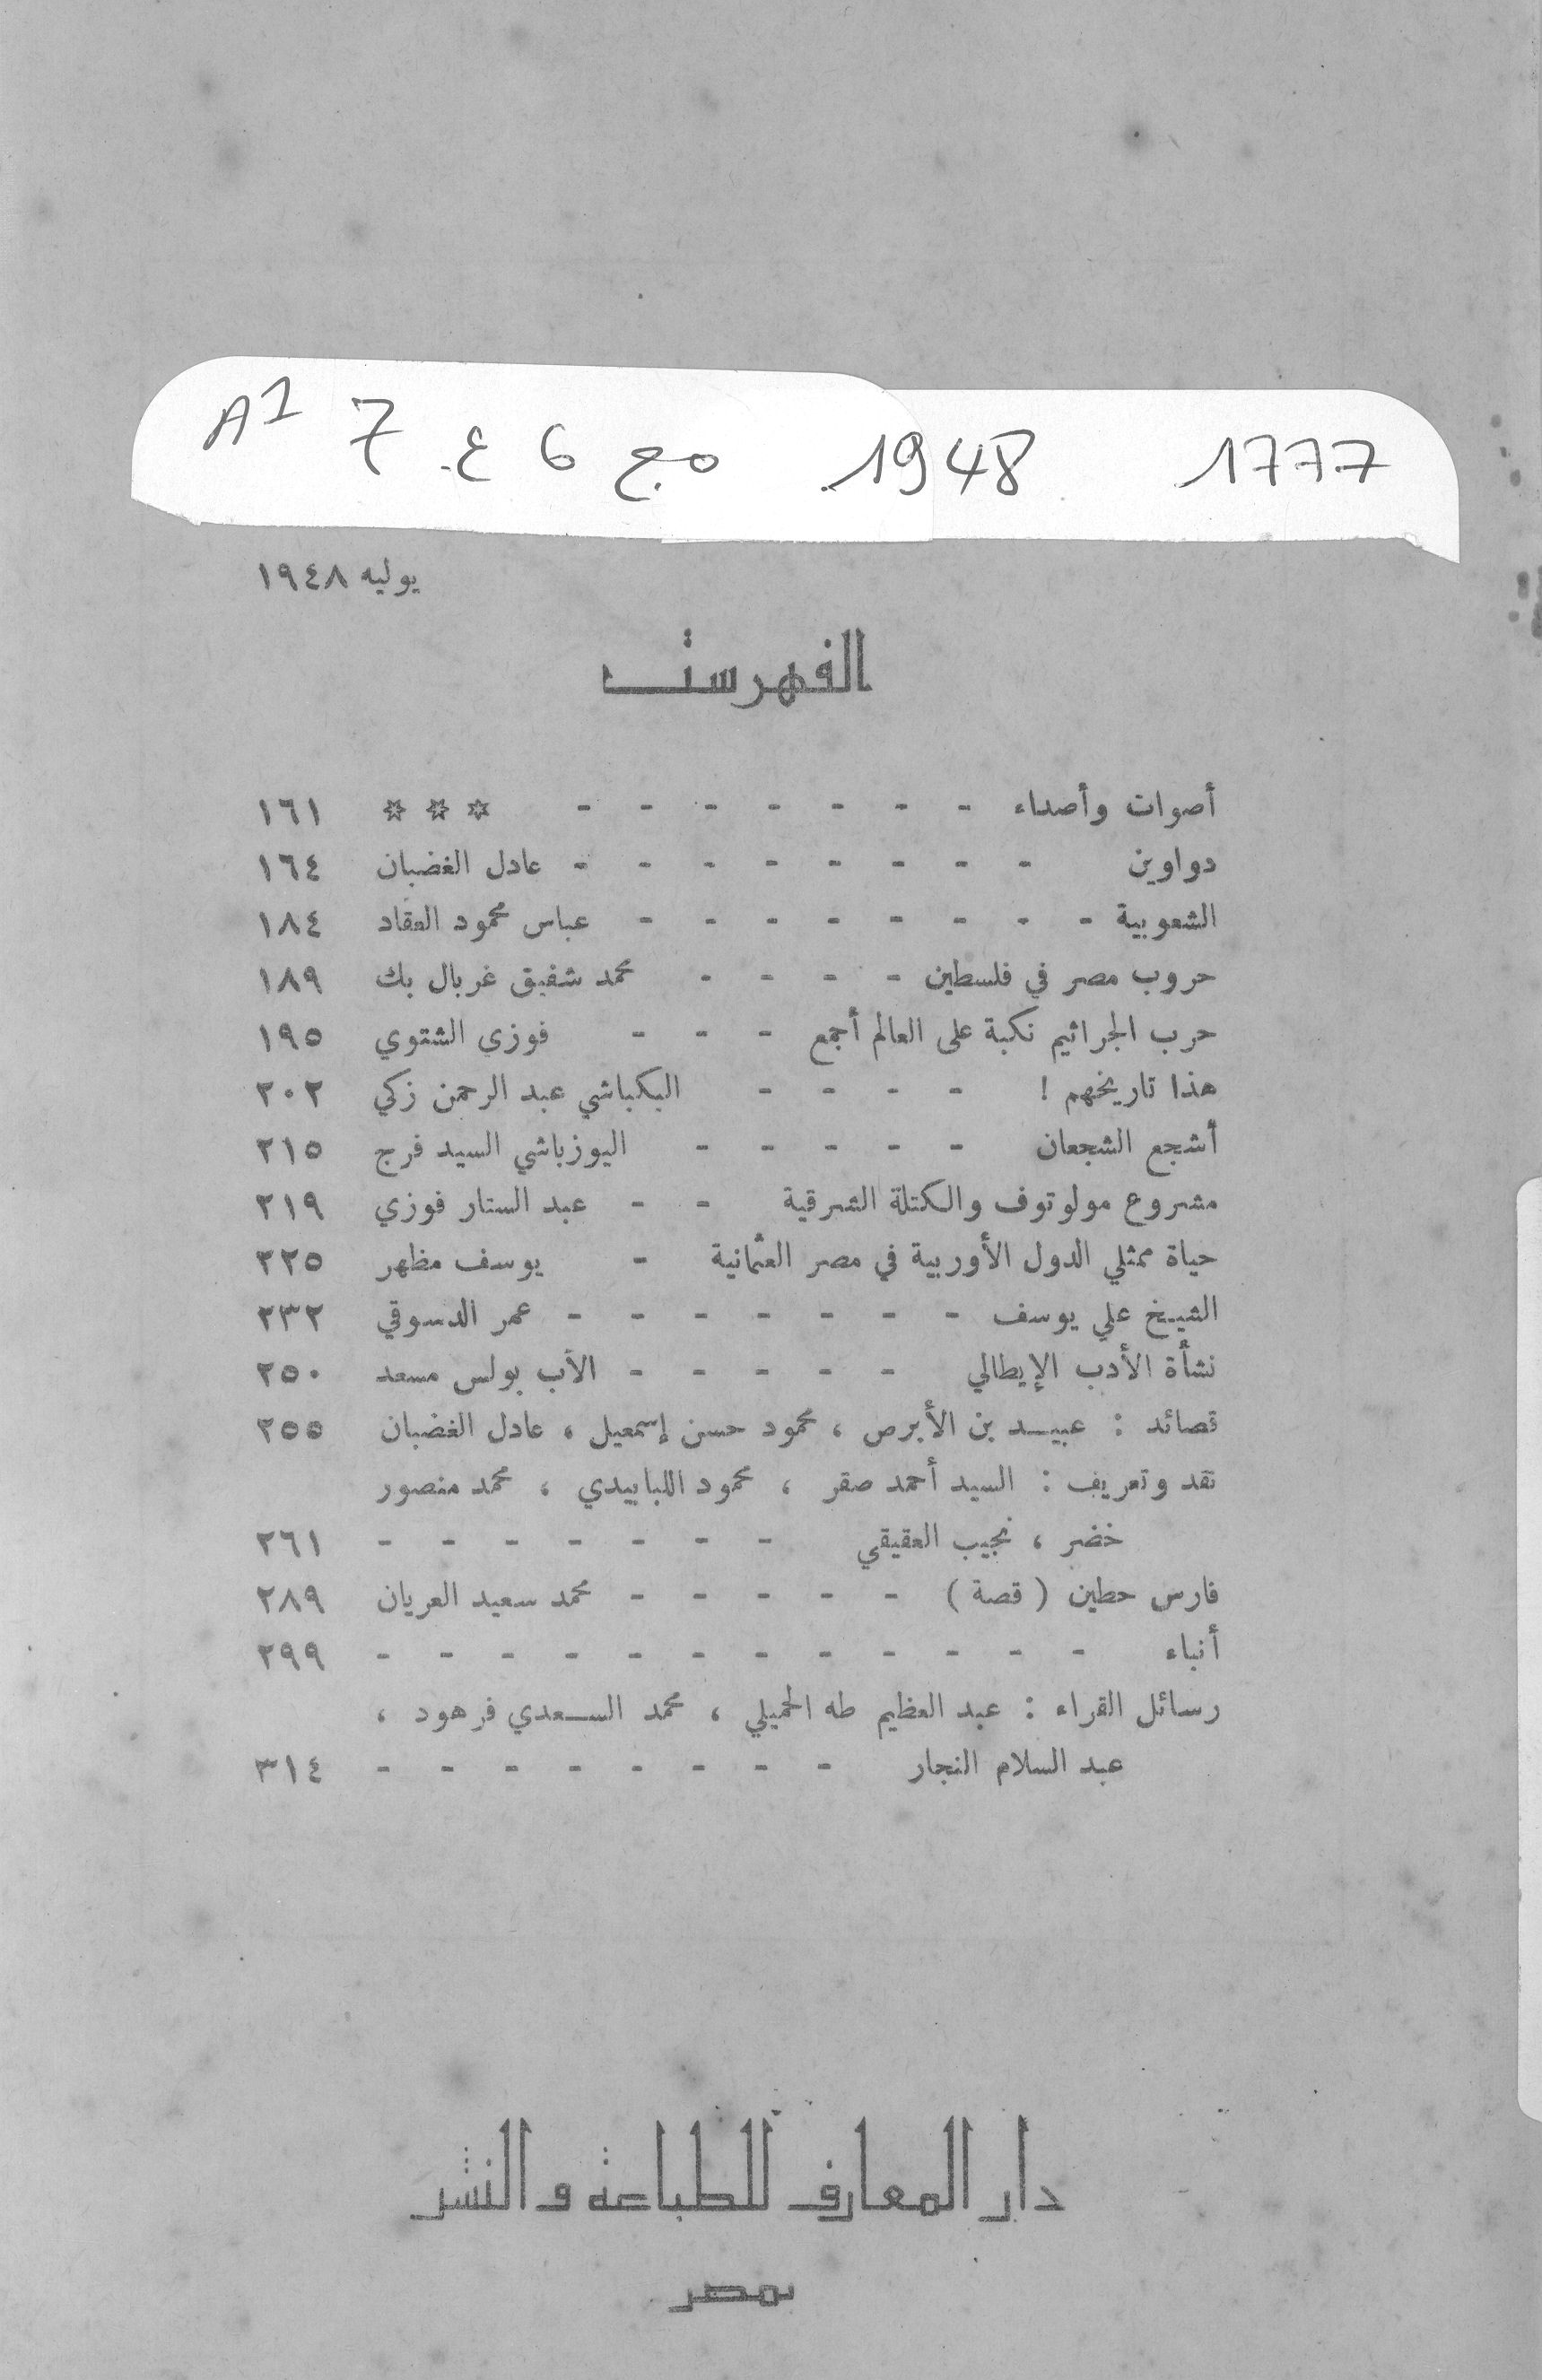 1777 1948 مج 6 ع. 7 A1
يوليه ١٩٤٨
الفهرست
أصوات وأصداء - - - - - - - *** ١٦١
دواوين - - - - - - - - عادل الغضبان ١٦٤
الشعوبية - - - - - - - - عباس محمود العقاد ١٨٤
حروب مصر في فلسطين - - - - محمد شفيق غربال بك ١٨٩
حرب الجراثيم نكبة على العالم أجمع - - - فوزي الشتوي ١٩٥
هذا تاريخهم ! - - - - البكباشي عبد الرحمن زكي ٢٠٢
أشجع الشجعان - - - - - اليوزباشي السيد فرج ٢١٥
مشروع مولوتوف والكتلة الشرقية - - عبد الستار فوزي ٢١٩
حياة ممثلي الدول الأوربية في مصر العثمانية - يوسف مظهر ٢٢٥
الشيخ علي يوسف - - - - - - - عمر الدسوقي ٢٣٢
نشأة الأدب الإيطالي - - - - - الأب بولس مسعد ٢٥٠
قصائد : عبيد بن الأبرص ، محمود حسن إسمعيل ، عادل الغضبان ٢٥٥
نقد وتعريف : السيد أحمد صقر ، محمود اللبابيدي ، محمد منصور
خضر ، نجيب العقيقي - - - - - - - ٢٦١
فارس حطين ( قصة ) - - - - - محمد سعيد العريان ٢٨٩
أنباء - - - - - - - - - - - - ٢٩٩
رسائل القراء : عبد العظيم طه الجميلي ، محمد السعدي فرهود ،
عبد السلام النجار - - - - - - - - ٣١٤
دار المعارف للطباعة والنشر
بمصر